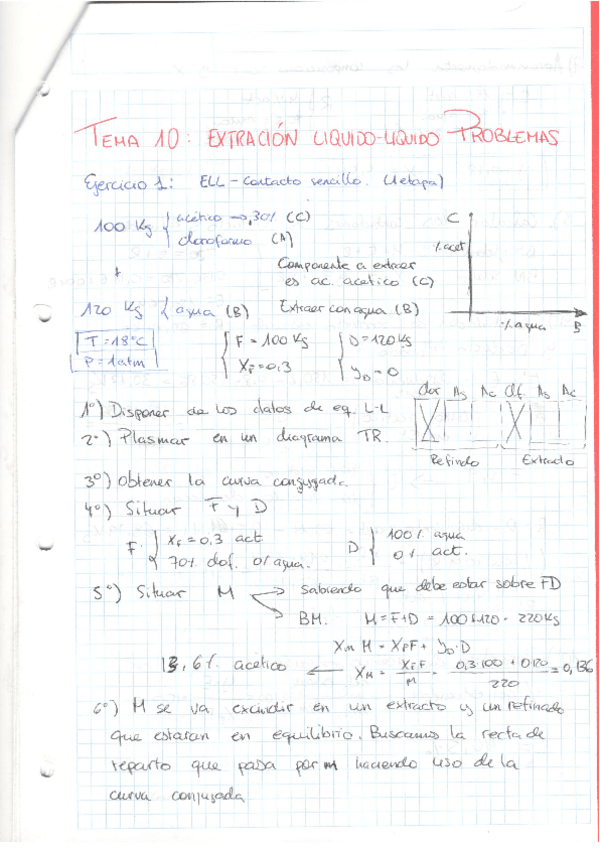 TEMA 10: EXTRACIÓN LIQUIDO-LIQUIDO PROBLEMAS
Ejercicio 1: ELL - Contacto sencillo. (1 etapa)
100 Kg { acético → 30% (C)
cloroformo (A)
+
Componente a extraer
es ac. acetico (C)
120 Kg { agua (B) Extraer con agua (B)
C
% acet
% agua
B
T = 18°C
P = 1 atm
F = 100 Kg
XF = 0,3
D = 120 Kg
yD = 0
1º) Disponer de los datos de eq. L-L
2º) Plasmar en un diagrama TR.
clor Ag Ac Clf. Ag Ac
Refindo Extracto
3º) Obtener la curva conjugada.
4º) Situar F y D
F { XF = 0,3 act
70% clof. 0% agua.
D { 100% agua
0% act.
5º) Situar M → Sabiendo que debe estar sobre FD
→ BM. M = F+D = 100+120 = 220 Kg
XM M = XF F + yD · D
13,6% acetico ← XM = XF F / M = 0,3·100 + 0·120 / 220 = 0,136
6º) M se va excindir en un extracto y un refinado
que estaran en equilibrio. Buscamos la recta de
reparto que pasa por M haciendo uso de la
curva conjugada